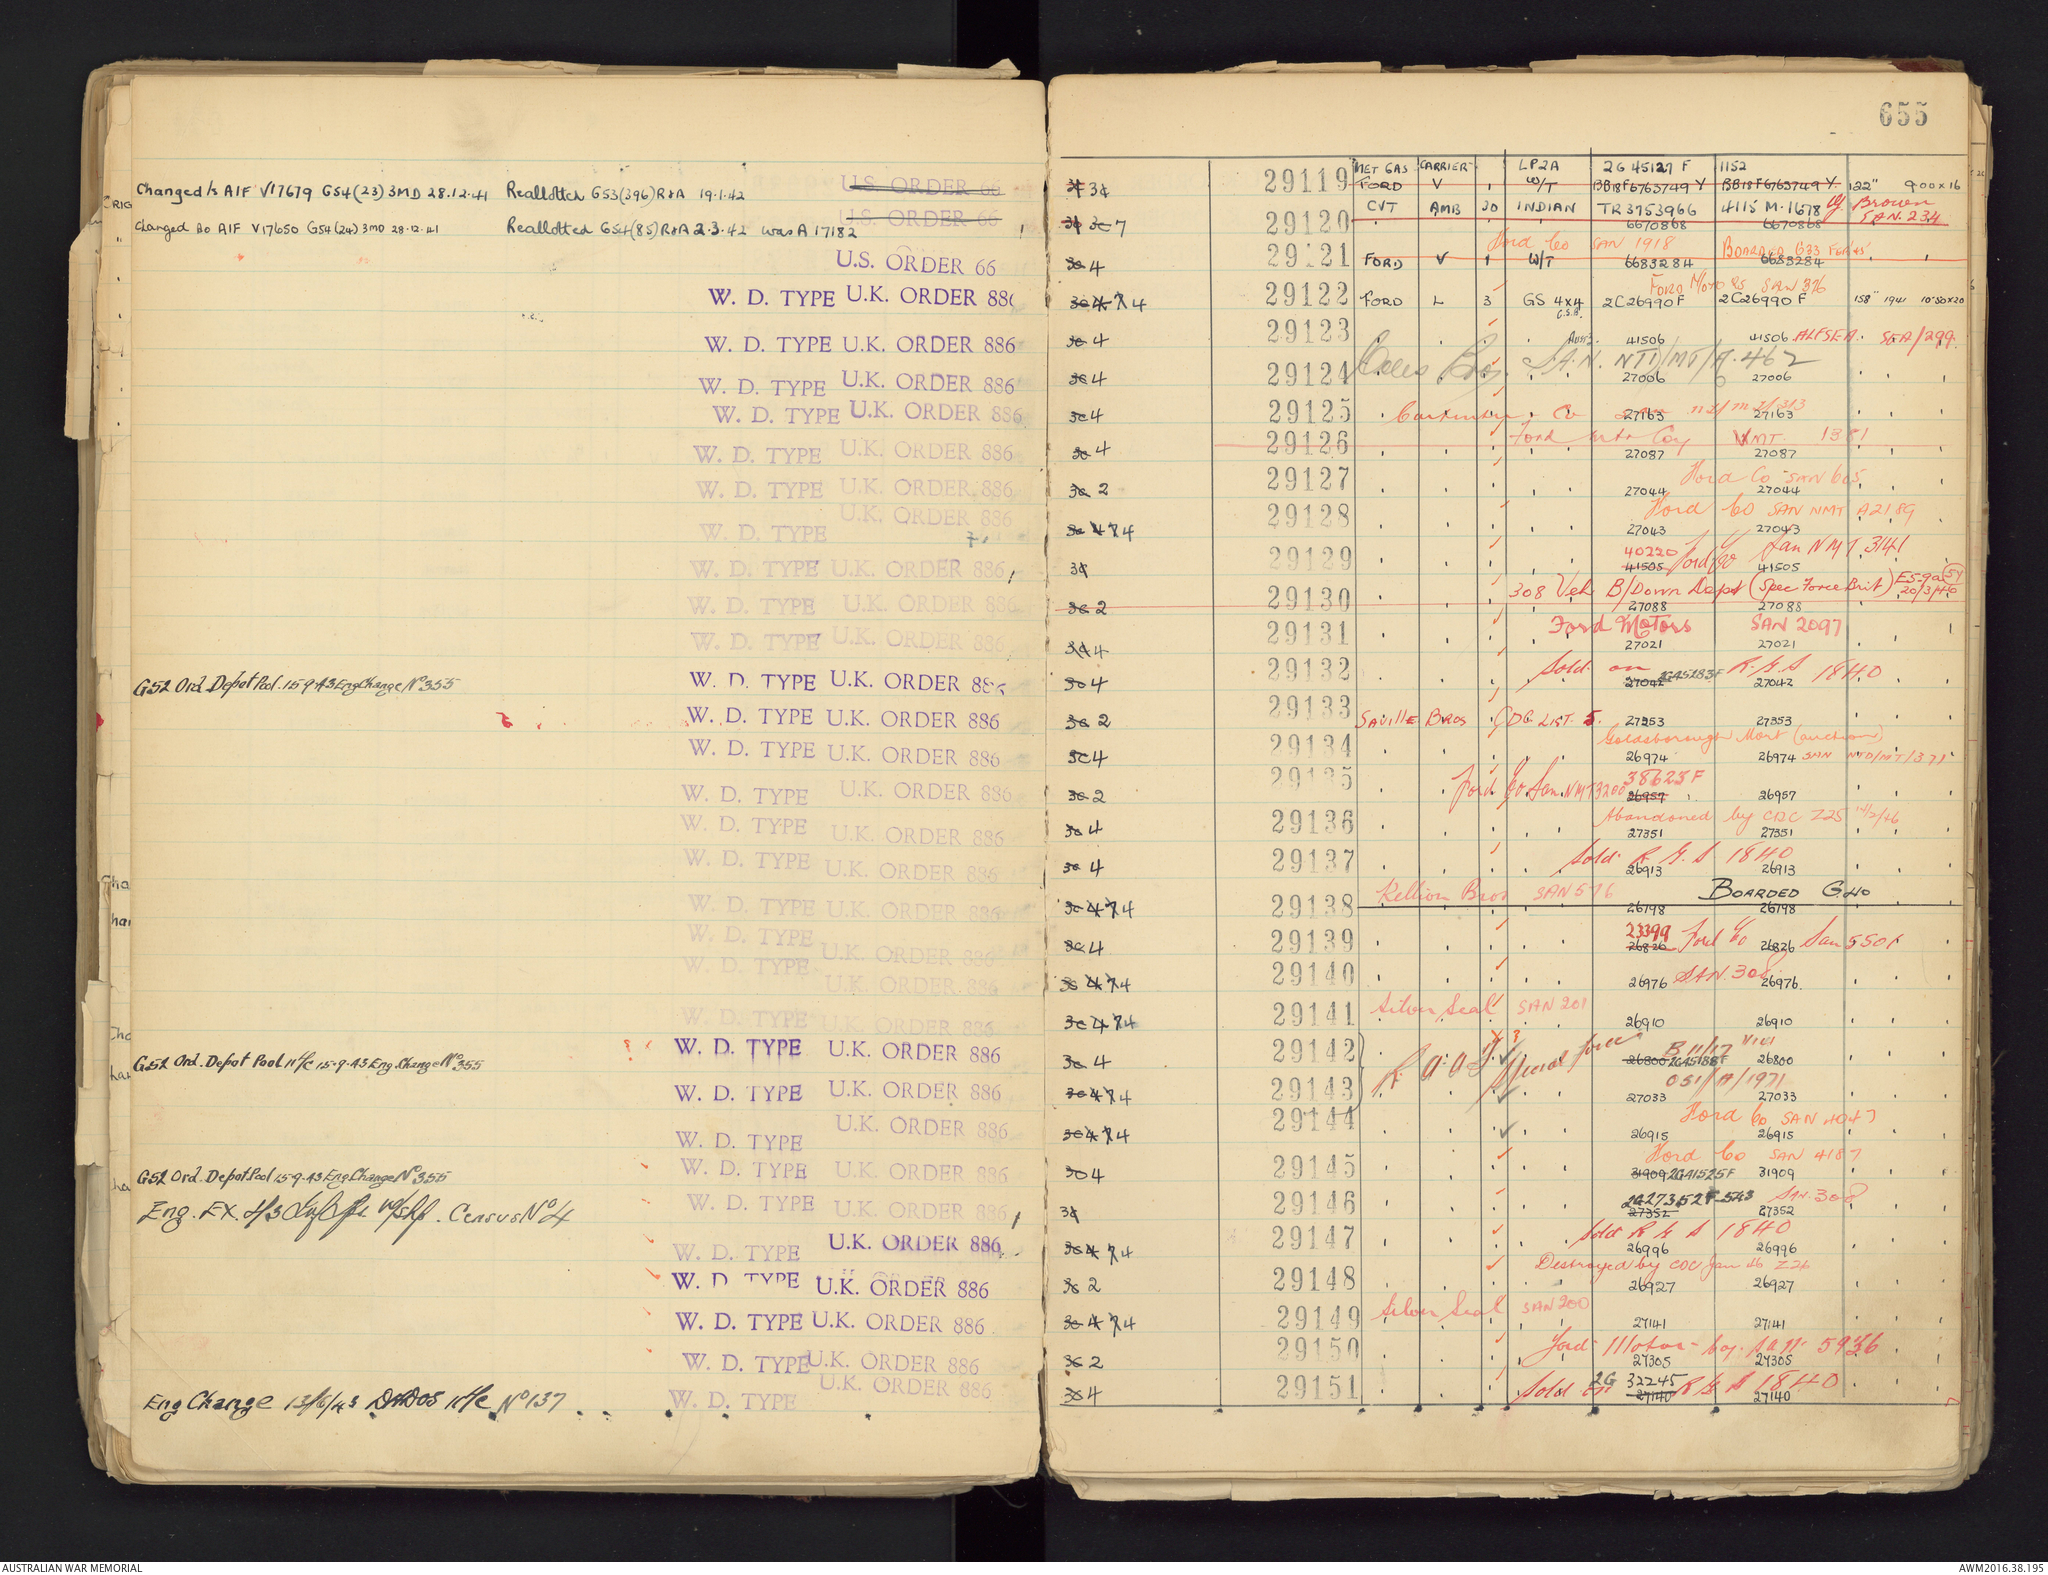 Changed /s AIF V17679 G54(23) 3MD 28.12.41 Reallotted G53(396)R&A 19.1.42 U.S. ORDER 66
Changed to AIF V17650 G54(24) 3MD 28.12.41 Reallotted G54(85)R&A 2.3.42 was A 17182 U.S. ORDER 66
U.S. ORDER 66
W. D. TYPE U.K. ORDER 886
W. D. TYPE U.K. ORDER 886
W. D. TYPE U.K. ORDER 886
W. D. TYPE U.K. ORDER 886
W. D. TYPE U.K. ORDER 886
W. D. TYPE U.K. ORDER 886
W. D. TYPE U.K. ORDER 886
W. D. TYPE U.K. ORDER 886
W. D. TYPE U.K. ORDER 886
W. D. TYPE U.K. ORDER 886
G52 Ord. Depot Pool. 15-9-43 Eng Change No 355 W. D. TYPE U.K. ORDER 886
W. D. TYPE U.K. ORDER 886
W. D. TYPE U.K. ORDER 886
W. D. TYPE U.K. ORDER 886
W. D. TYPE U.K. ORDER 886
W. D. TYPE U.K. ORDER 886
W. D. TYPE U.K. ORDER 886
W. D. TYPE U.K. ORDER 886
W. D. TYPE U.K. ORDER 886
W. D. TYPE U.K. ORDER 886
G52 Ord. Depot Pool 15-9-43 Eng. Change No 355 W. D. TYPE U.K. ORDER 886
W. D. TYPE U.K. ORDER 886
W. D. TYPE U.K. ORDER 886
G52 Ord. Depot Pool 15-9-43 Eng Change No 355 W. D. TYPE U.K. ORDER 886
Eng. EX. Census No 4 W. D. TYPE U.K. ORDER 886
W. D. TYPE U.K. ORDER 886
W. D. TYPE U.K. ORDER 886
W. D. TYPE U.K. ORDER 886
W. D. TYPE U.K. ORDER 886
Eng Change 13/6/43 No 137 W. D. TYPE U.K. ORDER 886
655
NET GAS CARRIER LP2A 2G 45127 F 1152
29119 FORD V 1 W/T BB18F6763749 Y BB18F6763749 Y 122" 900 x 16
CVT AMB 20 INDIAN TR3753966 4115 M.1678 Brown
29120 6670868 6670868 SAN. 234
Ford Co SAN 1918 BOARDED G33
4 29121 FORD V 1 W/T 6683284 6683284
FORD Motors SAN 376
4 29122 FORD L 3 GS 4x4 2C26990F 2C26990 F 158" 1941 10.50x20
4 29123 41506 41506 ALFSEA. SEA/299
4 29124 Coles Bros. S.A.N. NTD/MT/A.462
27006 27006
4 29125 Co 27163 27163
Ford Mtr Coy NMT. 1381
4 29126 27087 27087
Ford Co SAN 605
2 29127 27044 27044
Ford Co SAN NMT A2189
4 29128 27043 27043
40220 Ford Co San NMT 3141
29129 41505 41505
308 Veh B/Down Depot (Spec Force Brit)
2 29130 27088 27088 20/3/46
Ford Motors SAN 2097
4 29131 27021 27021
Sold on R.G.S 1840
4 29132 27042 2G45283F 27042
2 29133 Saville Bros CDC LIST. 5. 27353 27353
Goldsborough Mort (auction)
4 29134 26974 26974 SAN NTD/MT/1371
Ford Co San. NMT3200 38623F
2 29135 26957 26957
Abandoned by CDC Z25 14/2/46
4 29136 27351 27351
Sold R.G.S 1840
4 29137 26913 26913
Kellion Bros SAN 576 BOARDED G40
4 29138 26798 26798
23399 Ford Co San 5501
4 29139 26826 26826
4 29140 26976 SAN. 308 26976
Silver Seal SAN 201
4 29141 26910 26910
4 29142 Special Force 26800 2G45188F 26800
4 29143 27033 27033
Ford Co SAN 4047
4 29144 26915 26915
Ford Co SAN 4187
4 29145 31909 2G41525F 31909
SAN. 308
29146 27352 27352
Sold R G S 1840
4 29147 26996 26996
Destroyed by CDC Jan 46 Z26
2 29148 26927 26927
Silver Seal SAN 200
4 29149 27141 27141
Ford Motor Coy. San. 5936
2 29150 27305 27305
Sold on 2G 32245 R G S 1840
4 29151 27140 27140
AUSTRALIAN WAR MEMORIAL AWM2016.38.195